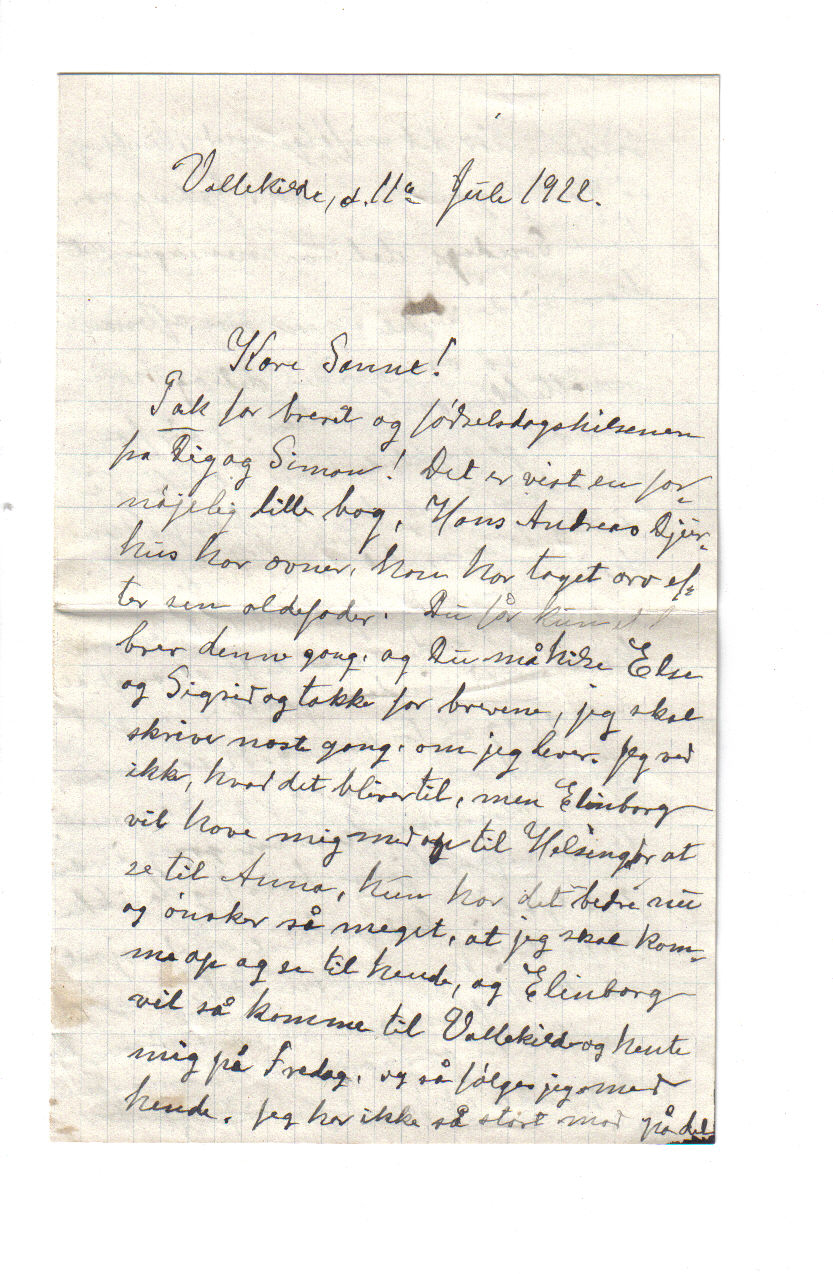 Vallekilde, d. 11a Juli 1922.
Kære Sanne!
Tak for brevet og fødselsdagshilsenen
fra Dig og Simon! Det er vist en for-
nøjelig lille bog, Hans Andreas Djur-
hus har ovner, han har taget arv ef-
ter sin oldefader. Du får kun et
brev denne gang, og Du må hilse Else
og Sigrid og takke for brevene, jeg skal
skrive næste gang, om jeg lever. Jeg ved
ikk, hvad det bliver til, men Elinborg
vil have mig med op til Helsingør at
se til Anna, hun har det bedre nu
og ønsker så meget, at jeg skal kom-
me op og se til hende, og Elinborg
vil så komme til Vallekilde og hente
mig på Fredag, og så følges jeg med
hende. Jeg har ikke så stort mod på det